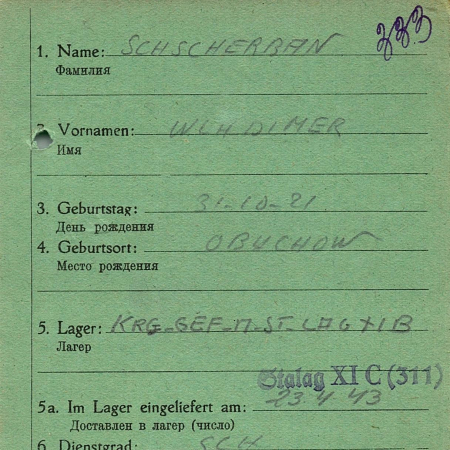 333
1. Name: SCHSCHERBAN
Фамилия
Vornamen: WLADIMER
Имя
3. Geburtstag: 31-10-21
День рождения
4. Geburtsort: OBUCHOW
Место рождения
5. Lager: KRG-GEF-M-ST-LAG XI B
Лагер
Stalag XI C (311)
5a. Im Lager eingeliefert am: 23.4 43
Доставлен в лагер (число)
6. Dienstgrad: